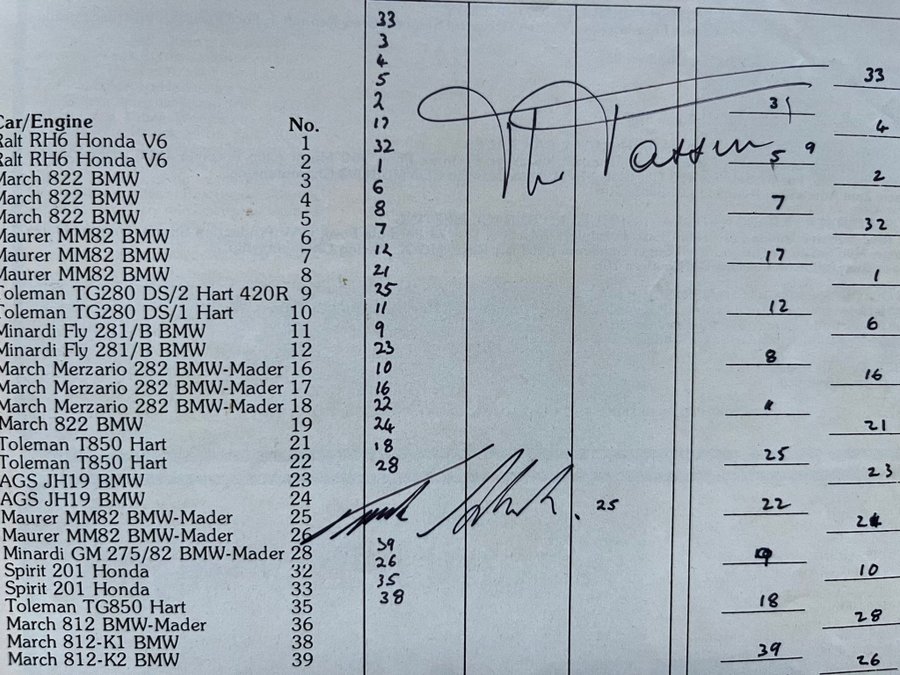 Car/Engine No.
Ralt RH6 Honda V6 1
Ralt RH6 Honda V6 2
March 822 BMW 3
March 822 BMW 4
March 822 BMW 5
Maurer MM82 BMW 6
Maurer MM82 BMW 7
Maurer MM82 BMW 8
Toleman TG280 DS/2 Hart 420R 9
Toleman TG280 DS/1 Hart 10
Minardi Fly 281/B BMW 11
Minardi Fly 281/B BMW 12
March Merzario 282 BMW-Mader 16
March Merzario 282 BMW-Mader 17
March Merzario 282 BMW-Mader 18
March 822 BMW 19
Toleman T850 Hart 21
Toleman T850 Hart 22
AGS JH19 BMW 23
AGS JH19 BMW 24
Maurer MM82 BMW-Mader 25
Maurer MM82 BMW-Mader 26
Minardi GM 275/82 BMW-Mader 28
Spirit 201 Honda 32
Spirit 201 Honda 33
Toleman TG850 Hart 35
March 812 BMW-Mader 36
March 812-K1 BMW 38
March 812-K2 BMW 39
33
3
4
5
2
17
32
1
6
8
7
12
21
25
11
9
23
10
16
22
24
18
28
39
26
35
38
Th. Tassin 9
25
33
3
4
5
2
7
32
17
1
12
6
8
16
21
25
23
22
24
9
10
18
28
39
26